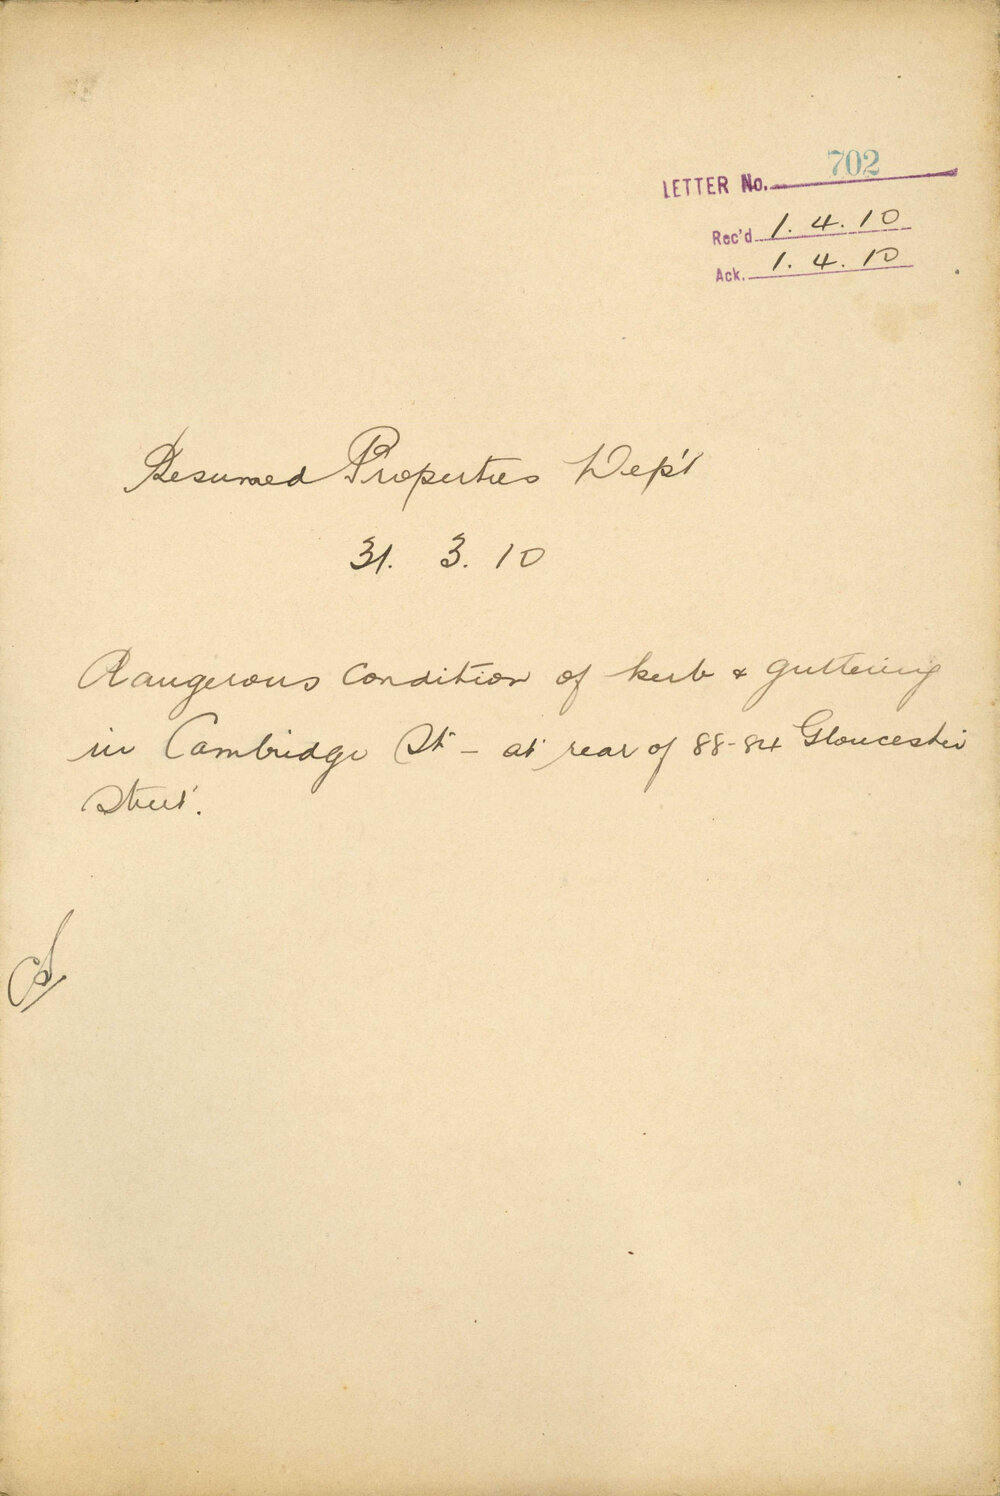 LETTER No. 702
Rec'd 1. 4. 10
Ack. 1. 4. 10
Resumed Properties Dep't
31. 3. 10
Dangerous condition of kerb & guttering
in Cambridge St - at rear of 88-84 Gloucester
Street.